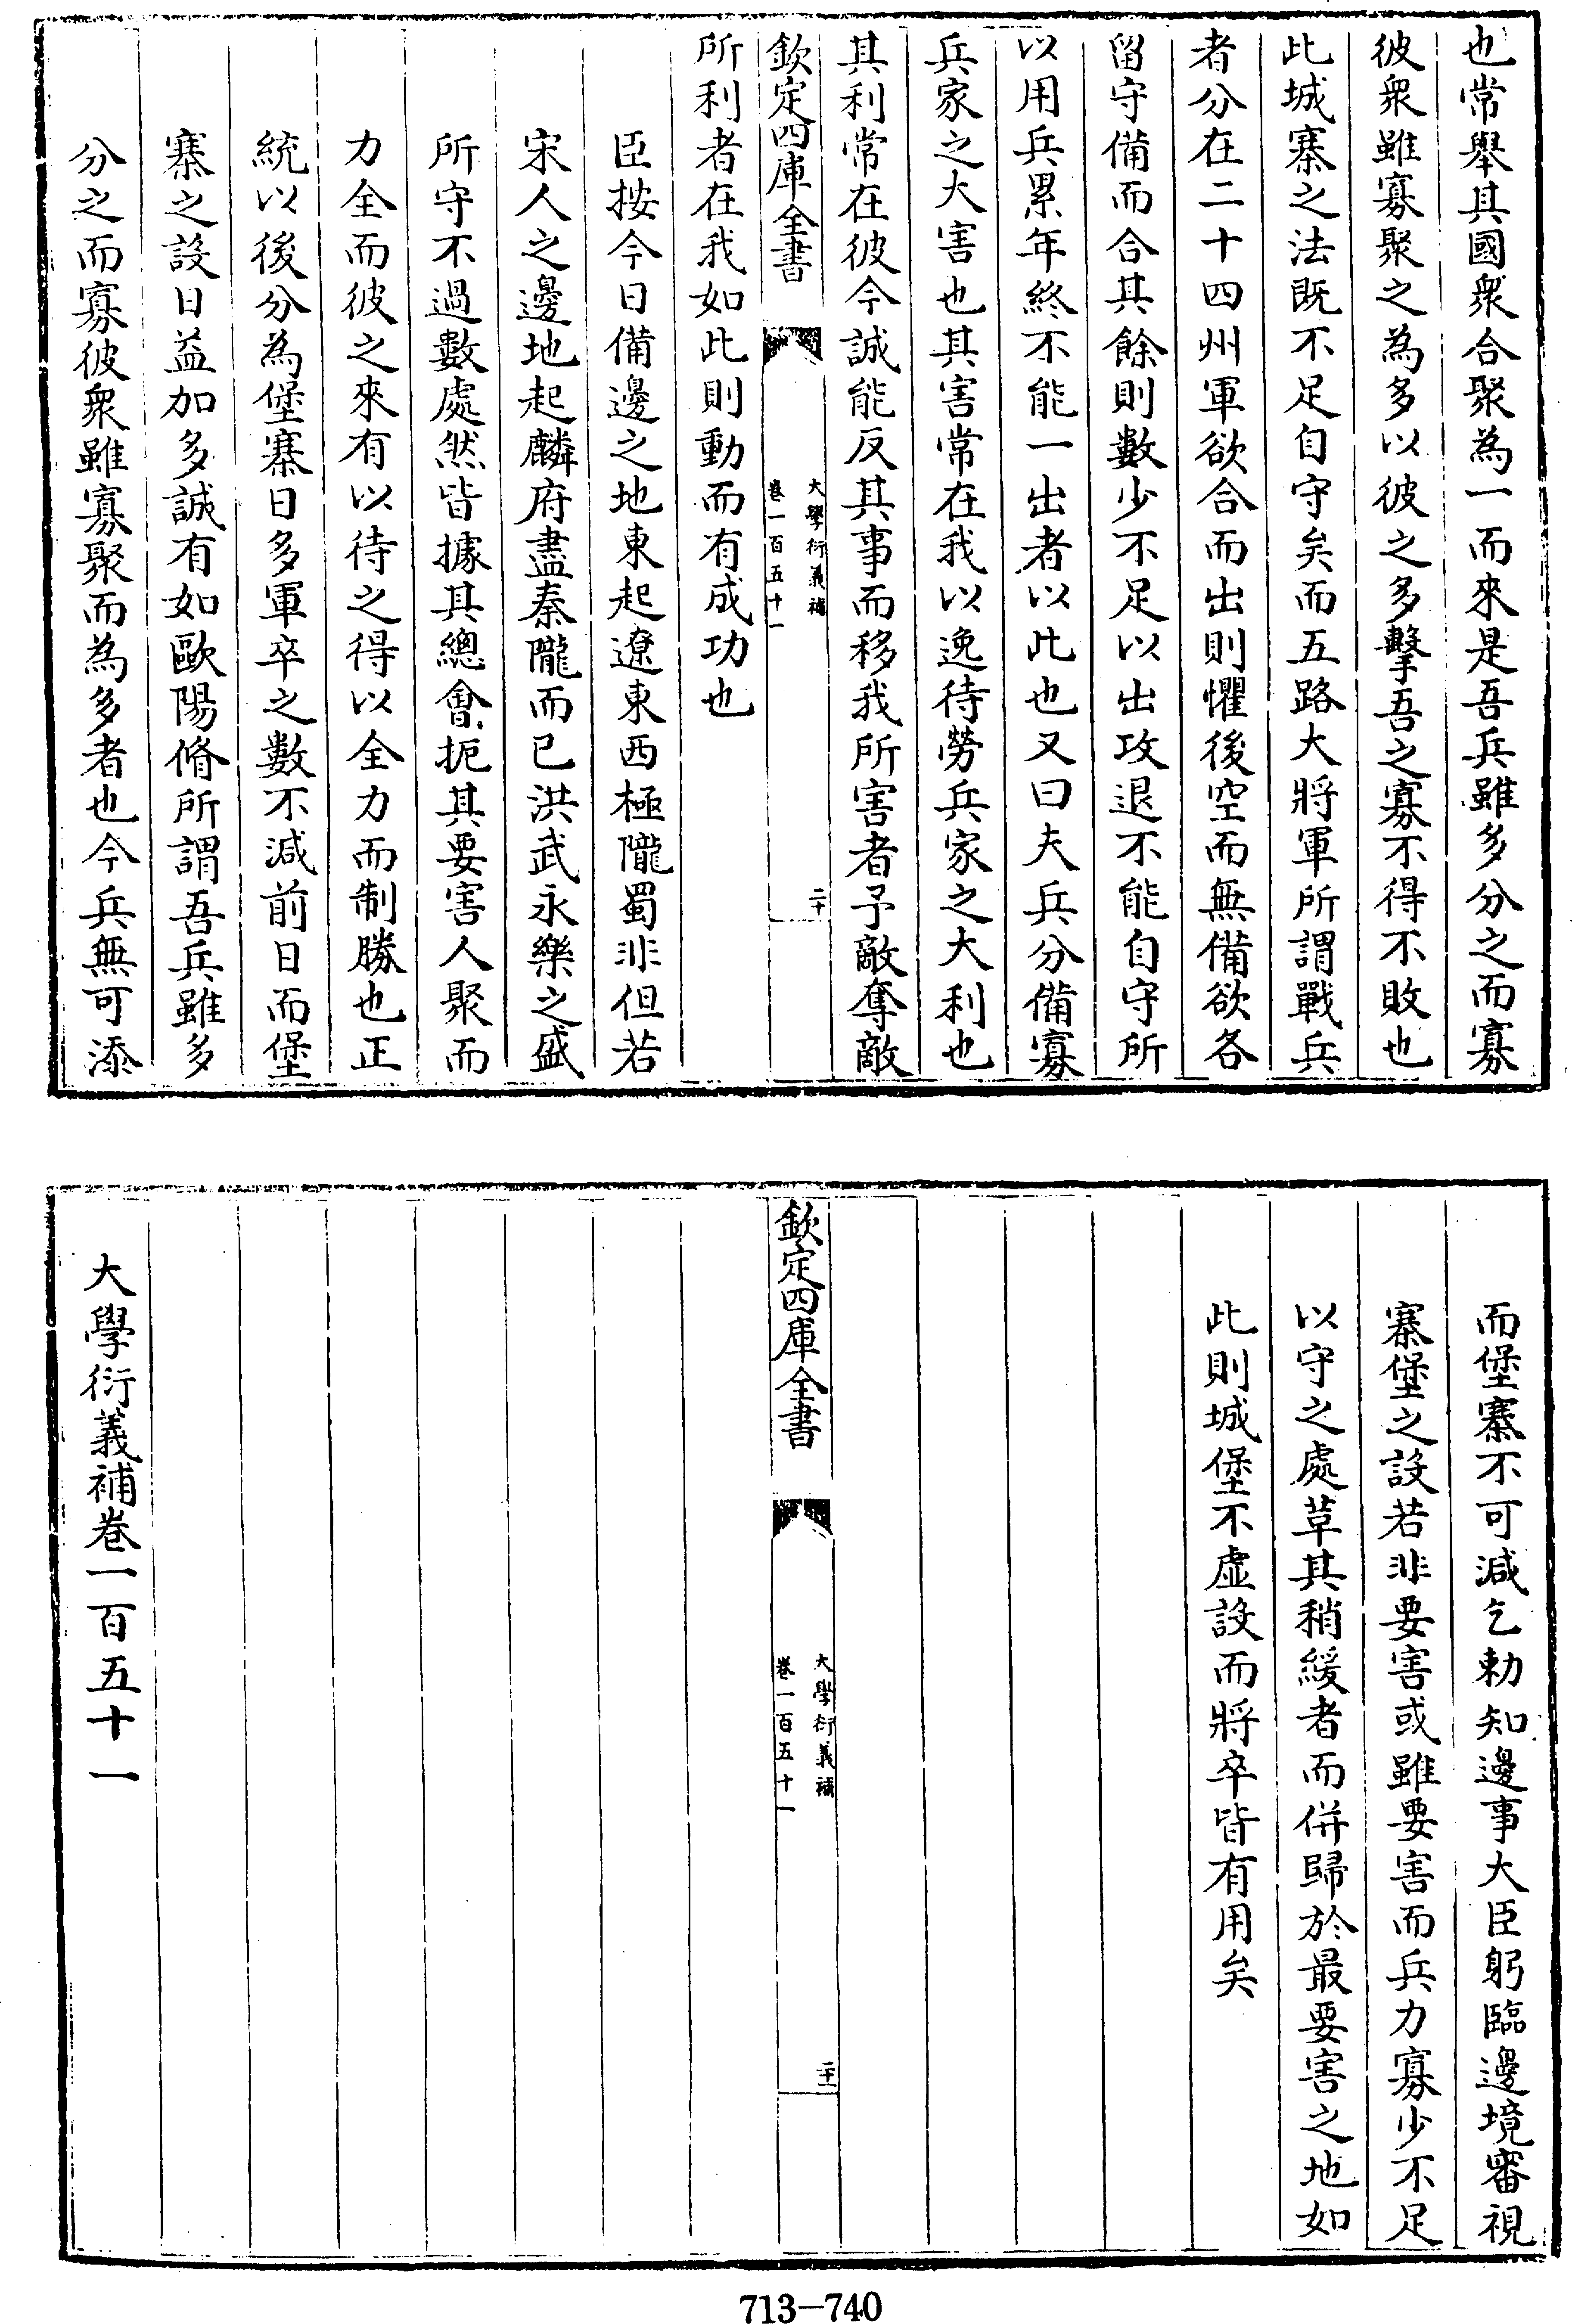 也常舉其國衆合聚為一而來是吾兵雖多分之而寡
彼衆雖寡聚之為多以彼之多擊吾之寡不得不敗也
此城寨之法既不足自守矣而五路大將軍所謂戰兵
者分在二十四州軍欲合而出則懼後空而無備欲各
留守備而合其餘則數少不足以出攻退不能自守所
以用兵累年終不能一出者以此也又曰夫兵分備寡
兵家之大害也其害常在我以逸待勞兵家之大利也
其利常在彼今誠能反其事而移我所害者予敵奪敵
欽定四庫全書
大學衍義補
卷一百五十一
二十
所利者在我如此則動而有成功也
臣按今日備邊之地東起遼東西極隴蜀非但若
宋人之邊地起麟府盡秦隴而已洪武永樂之盛
所守不過數處然皆據其總會扼其要害人聚而
力全而彼之來有以待之得以全力而制勝也正
統以後分為堡寨日多軍卒之數不減前日而堡
寨之設日益加多誠有如歐陽脩所謂吾兵雖多
分之而寡彼衆雖寡聚而為多者也今兵無可添
而堡寨不可減乞勅知邊事大臣躬臨邊境審視
寨堡之設若非要害或雖要害而兵力寡少不足
以守之處草其稍緩者而併歸於最要害之地如
此則城堡不虛設而將卒皆有用矣
欽定四庫全書
大學衍義補
卷一百五十一
二十一
大學衍義補卷一百五十一
713-740